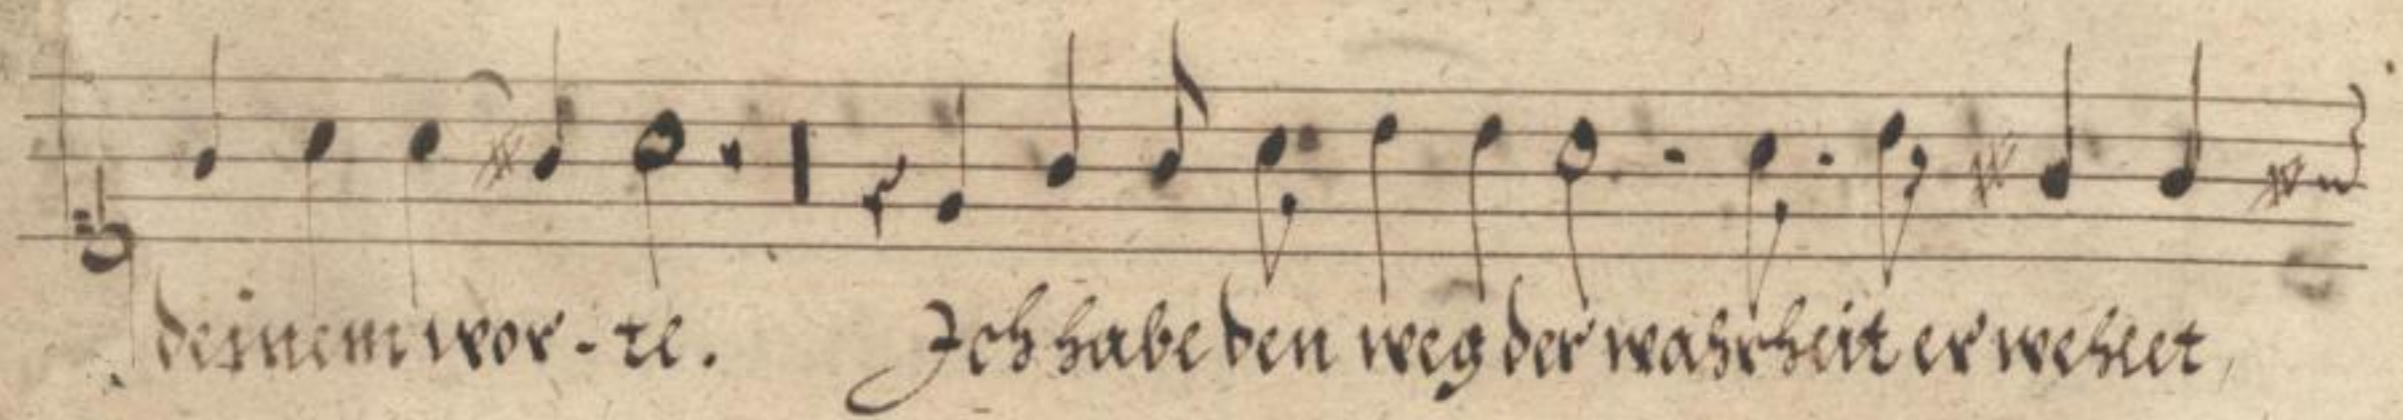 deinem wor - te. Ich habe den weg der wahrheit er wehlet,